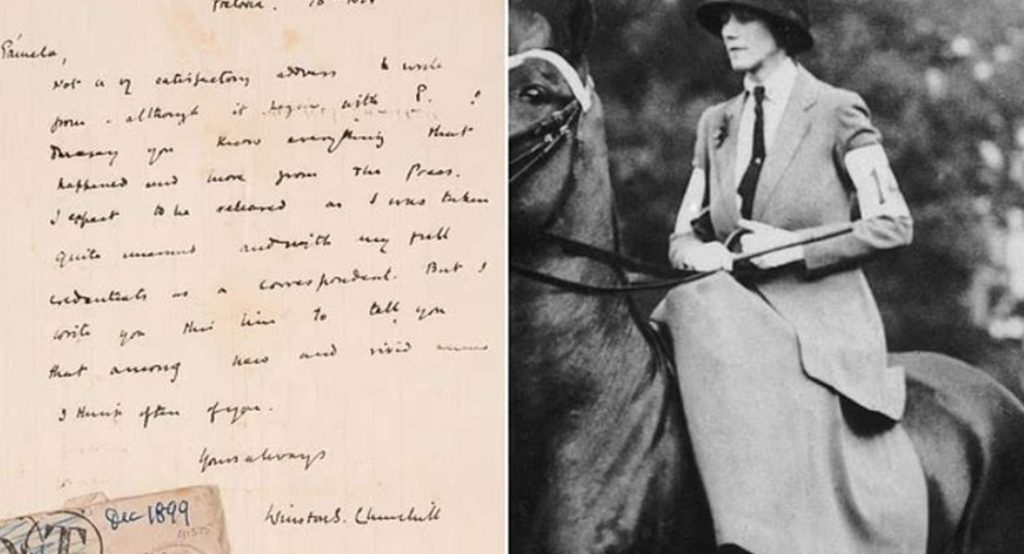 Pretoria.
Pamela,
Not a vy satisfactory address to write
from - although it begins with P.
I daresay you know everything that
happened and more from the Press.
I expect to be released as I was taken
quite unarmed and with my full
credentials as a correspondent. But I
write you this line to tell you
that among new and vivid scenes
I think often of you.
Yours always
Winston S. Churchill
Dec 1899
1